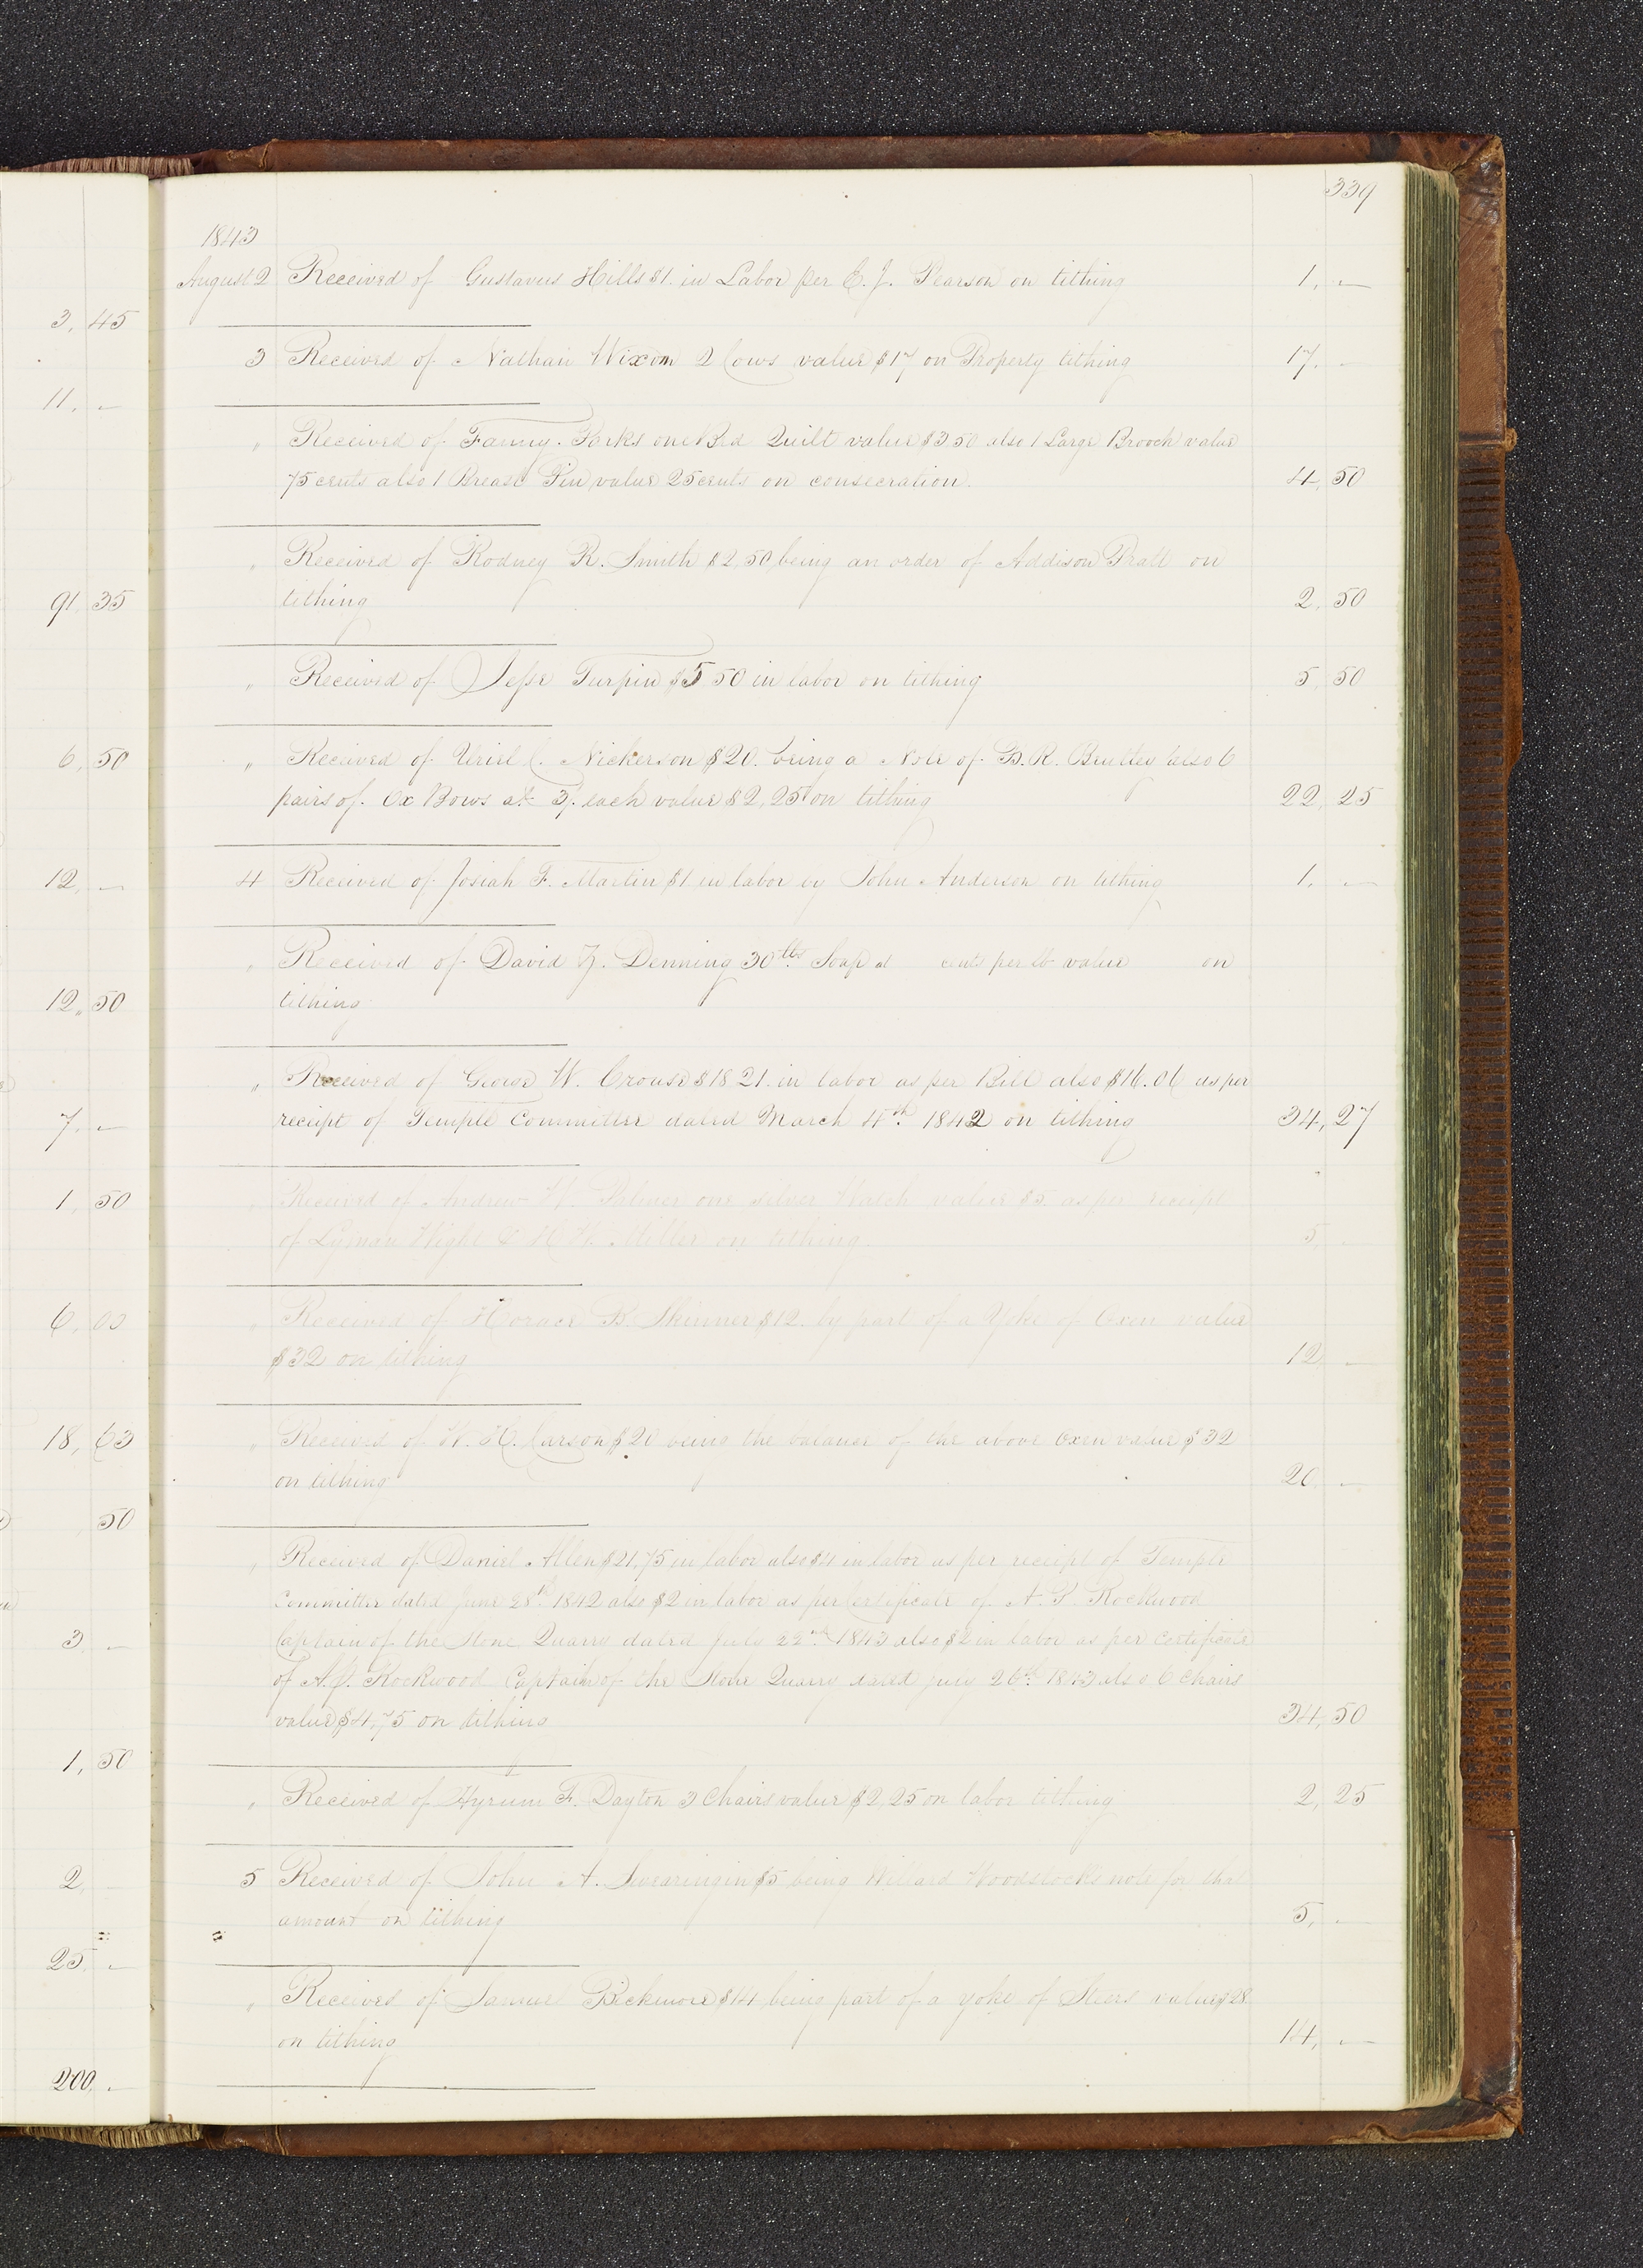 339
1843
August 2 Received of Gustavus Hills $1. in Labor per E. J. Pearson on tithing 1. —
3 Received of Nathan Wixom 2 Cows value $17 on Property tithing 17. —
" Received of Fanny Parks one Bed Quilt value $3 50 also 1 Large Brooch value
75 cents also 1 Breast Pin value 25 cents on consecration. 4, 50
" Received of Rodney R. Smith $2,50 being an order of Addison Pratt on
tithing 2, 50
" Received of Jesse Turpin $5 50 in labor on tithing 5 50
" Received of Uriel C. Nickerson $20. being a Note of B. R. also 6
pairs of Ox Bows at 3/. each value $2,25 on tithing 22, 25
4 Received of Josiah F. Martin $1 in labor by John Anderson on tithing 1. —
" Received of David Denning 30 lbs Soap at cents per lb value on
tithing
" Received of George W. Crouse $18 21. in labor as per Bill also $16.06 as per
receipt of Temple Committee dated March 4th. 1842 on tithing 34, 27
" Received of Andrew W. Palmer one silver Watch value $5. as per receipt
of Lyman Wight & H. W. Miller on tithing. 5, —
" Received of Horace B. Skinner $12. by part of a Yoke of Oxen value
$32 on tithing 12, —
" Received of W. H. Carson $20 being the balance of the above Oxen value $32
on tithing 20 —
" Received of Daniel Allen $21,75 in labor also $4 in labor as per receipt of Temple
Committee dated June 28th. 1842 also $2 in labor as per Certificate of A. P. Rockwood
Captain of the Stone Quarry dated July 22nd. 1843 also $2 in labor as per certificate
of A. P. Rockwood Captain of the Stone Quarry dated July 26th. 1843 also 6 Chairs
value $4,75 on tithing 34, 50
" Received of Hyrum F. Dayton 3 Chairs value $2,25 on labor tithing 2, 25
5 Received of John A. Swearingin $5 being Willard Woodstocks note for that
amount on tithing 5, —
" Received of Samuel Bickmore $14, being part of a yoke of Steers value $28
on tithing 14, —
3, 45
11, —
91, 35
6, 50
12, —
12, 50
7. —
1, 50
6, 00
18, 63
50
3, —
1, 50
2, —
25, —
200, —